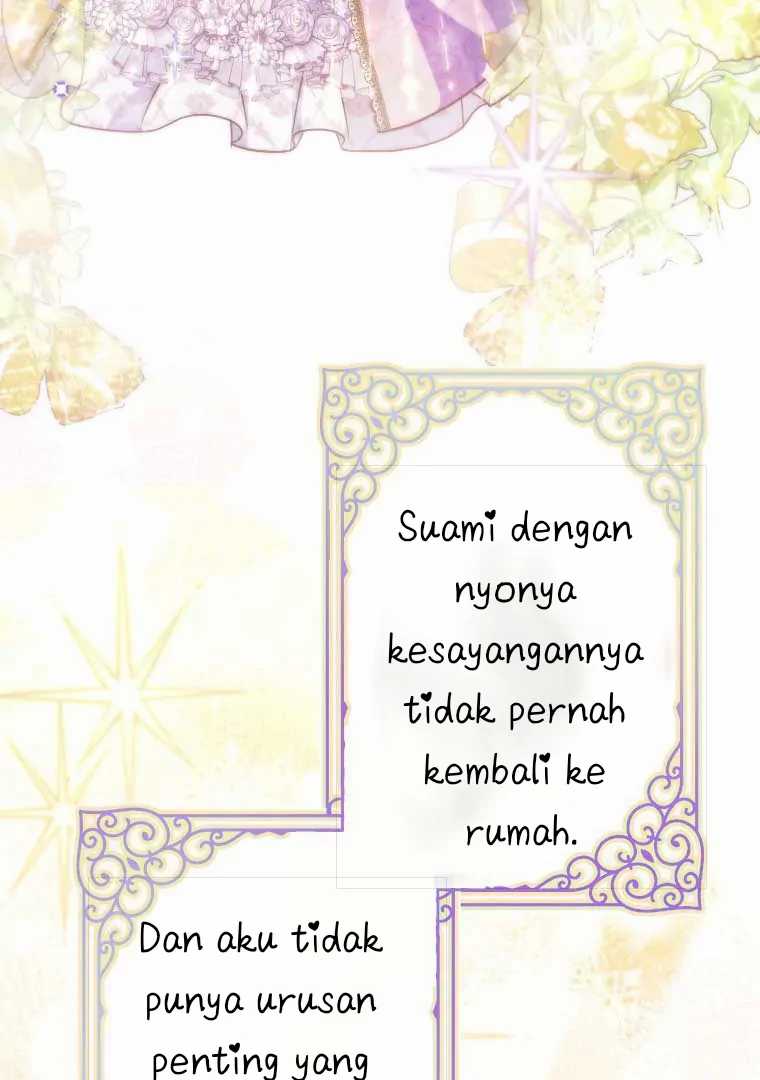 Suami dengan
nyonya
kesayangannya
tidak pernah
kembali ke
rumah.
Dan aku tidak
punya urusan
penting yang